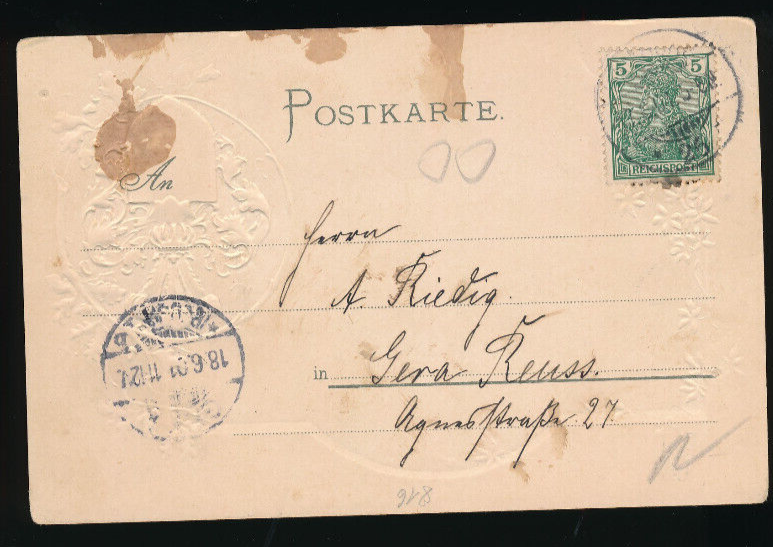 POSTKARTE.
5 5
REICHSPOST
An
Herrn
A. Riedig.
in Gera Reuss.
Agnesstraße 27
(REUSS)
18.6.01 11-12V.
816